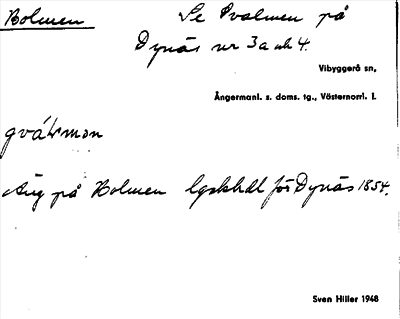 Bolmen
Se Svalmen på
Dynäs nr 3 a och 4.
Vibyggerå sn,
Ångermanl. s. doms. tg., Västernorrl. l.
Äng på Bolmen lgskhdl för Dynäs 1854.
Sven Hiller 1948